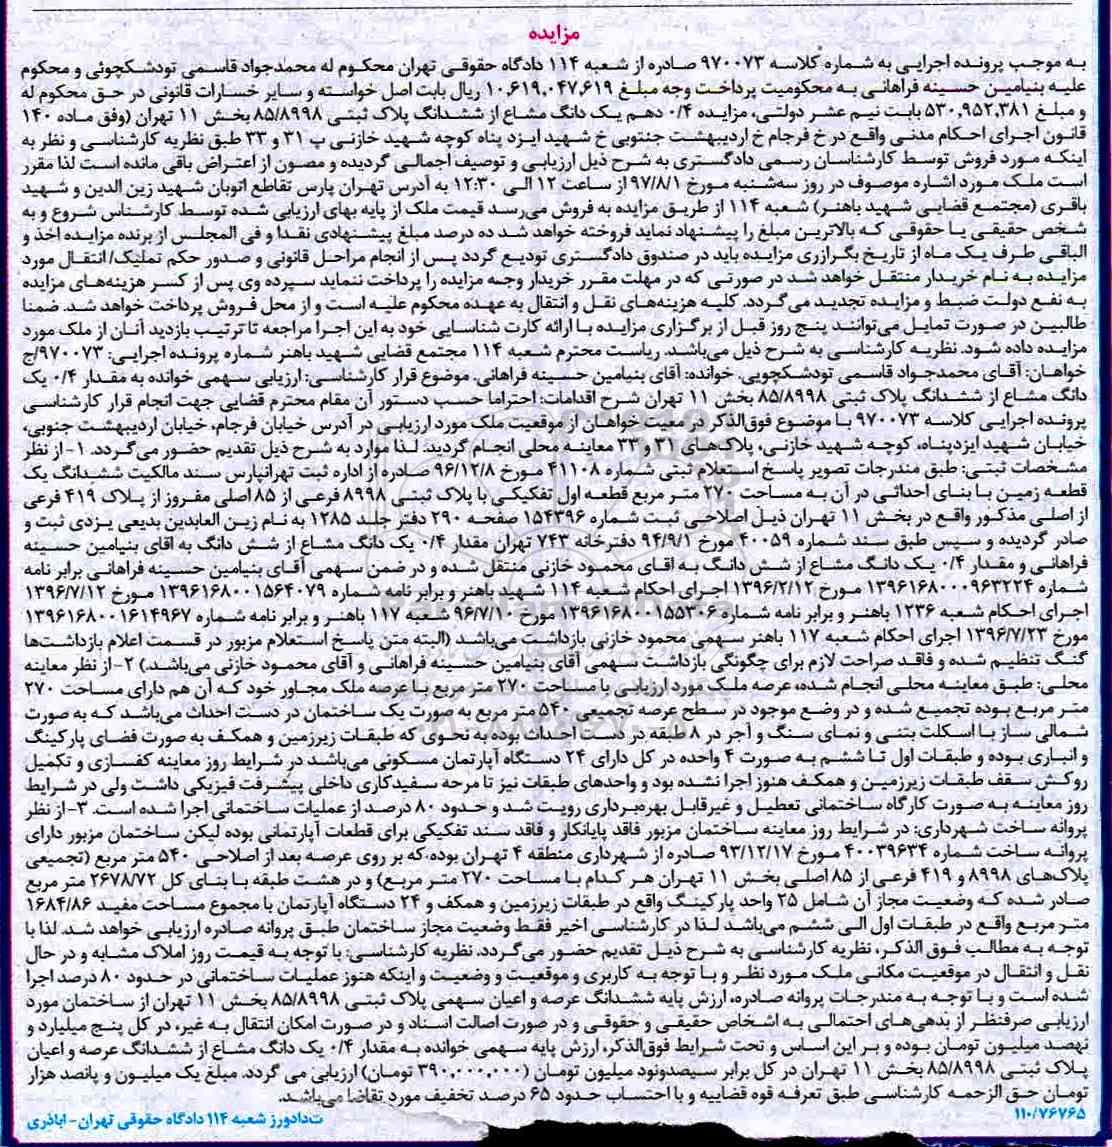 مزایده
به موجب پرونده اجرایی به شماره کلاسه ۹۷۰۰۷۳ صادره از شعبه ۱۱۴ دادگاه حقوقی تهران محکوم له محمدجواد قاسمی تودشکچوئی و محکوم
علیه بنیامین حسینه فراهانی به محکومیت پرداخت وجه مبلغ ۱۰,۶۱۹,۰۴۷,۶۱۹ ریال بابت اصل خواسته و سایر خسارات قانونی در حق محکوم له
و مبلغ ۵۳۰,۹۵۲,۳۸۱ بابت نیم عشر دولتی، مزایده ۰/۴ دهم یک دانگ مشاع از ششدانگ پلاک ثبتی ۸۵/۸۹۹۸ بخش ۱۱ تهران (وفق ماده ۱۴۰
قانون اجرای احکام مدنی واقع در خ فرجام خ اردیبهشت جنوبی خ شهید ایزد پناه کوچه شهید خازنی پ ۳۱ و ۳۳ طبق نظریه کارشناسی و نظر به
اینکه مورد فروش توسط کارشناسان رسمی دادگستری به شرح ذیل ارزیابی و توصیف اجمالی گردیده و مصون از اعتراض باقی مانده است لذا مقرر
است ملک مورد اشاره موصوف در روز سه‌شنبه مورخ ۹۷/۸/۱ از ساعت ۱۲ الی ۱۲:۳۰ به آدرس تهران پارس تقاطع اتوبان شهید زین الدین و شهید
باقری (مجتمع قضایی شهید باهنر) شعبه ۱۱۴ از طریق مزایده به فروش می‌رسد قیمت ملک از پایه بهای ارزیابی شده توسط کارشناس شروع و به
شخص حقیقی یا حقوقی که بالاترین مبلغ را پیشنهاد نماید فروخته خواهد شد ده درصد مبلغ پیشنهادی نقدا و فی المجلس از برنده مزایده اخذ و
الباقی ظرف یک ماه از تاریخ بگزاری مزایده باید در صندوق دادگستری تودیع گردد پس از انجام مراحل قانونی و صدور حکم تملیک/ انتقال مورد
مزایده به نام خریدار منتقل خواهد شد در صورتی که در مهلت مقرر خریدار وجه مزایده را پرداخت ننماید سپرده وی پس از کسر هزینه‌های مزایده
به نفع دولت ضبط و مزایده تجدید می‌گردد. کلیه هزینه‌های نقل و انتقال به عهده محکوم علیه است و از محل فروش پرداخت خواهد شد. ضمنا
طالبین در صورت تمایل می‌توانند پنج روز قبل از برگزاری مزایده با ارائه کارت شناسایی خود به این اجرا مراجعه تا ترتیب بازدید آنان از ملک مورد
مزایده داده شود. نظریه کارشناسی به شرح ذیل می‌باشد. ریاست محترم شعبه ۱۱۴ مجتمع قضایی شهید باهنر شماره پرونده اجرایی: ۹۷۰۰۷۳/ج
خواهان: آقای محمدجواد قاسمی تودشکچویی. خوانده: آقای بنیامین حسینه فراهانی. موضوع قرار کارشناسی: ارزیابی سهمی خوانده به مقدار ۰/۴ یک
دانگ مشاع از ششدانگ پلاک ثبتی ۸۵/۸۹۹۸ بخش ۱۱ تهران شرح اقدامات: احتراما حسب دستور آن مقام محترم قضایی جهت انجام قرار کارشناسی
پرونده اجرایی کلاسه ۹۷۰۰۷۳ با موضوع فوق‌الذکر در معیت خواهان از موقعیت ملک مورد ارزیابی در آدرس خیابان فرجام، خیابان اردیبهشت جنوبی،
خیابان شهید ایزدپناه، کوچه شهید خازنی، پلاک‌های ۳۱ و ۳۳ معاینه محلی انجام گردید. لذا موارد به شرح ذیل تقدیم حضور می‌گردد. ۱- از نظر
مشخصات ثبتی: طبق مندرجات تصویر پاسخ استعلام ثبتی شماره ۴۱۱۰۸ مورخ ۹۶/۱۲/۸ صادره از اداره ثبت تهرانپارس سند مالکیت ششدانگ یک
قطعه زمین با بنای احداثی در آن به مساحت ۲۷۰ متر مربع قطعه اول تفکیکی با پلاک ثبتی ۸۹۹۸ فرعی از ۸۵ اصلی مفروز از پلاک ۴۱۹ فرعی
از اصلی مذکور واقع در بخش ۱۱ تهران ذیل اصلاحی ثبت شماره ۱۵۴۳۹۶ صفحه ۲۹۰ دفتر جلد ۱۲۸۵ به نام زین العابدین بدیعی یزدی ثبت و
صادر گردیده و سپس طبق سند شماره ۴۰۰۵۹ مورخ ۹۴/۹/۱ دفترخانه ۷۴۳ تهران مقدار ۰/۴ یک دانگ مشاع از شش دانگ به اقای بنیامین حسینه
فراهانی و مقدار ۰/۴ یک دانگ مشاع از شش دانگ به اقای محمود خازنی منتقل شده و در ضمن سهمی آقای بنیامین حسینه فراهانی برابر نامه
شماره ۱۳۹۶۱۶۸۰۰۰۹۶۳۲۲۴ مورخ ۱۳۹۶/۲/۱۲ اجرای احکام شعبه ۱۱۴ شهید باهنر و برابر نامه شماره ۱۳۹۶۱۶۸۰۰۱۵۶۴۰۷۹ مورخ ۱۳۹۶/۷/۱۲
اجرای احکام شعبه ۱۲۳۶ باهنر و برابر نامه شماره ۱۳۹۶۱۶۸۰۰۱۵۵۳۰۶ مورخ ۹۶/۷/۱۰ شعبه ۱۱۷ باهنر و برابر نامه شماره ۱۳۹۶۱۶۸۰۰۱۶۱۴۹۶۷
مورخ ۱۳۹۶/۷/۲۳ اجرای احکام شعبه ۱۱۷ باهنر سهمی محمود خازنی بازداشت می‌باشد (البته متن پاسخ استعلام مزبور در قسمت اعلام بازداشت‌ها
گنگ تنظیم شده و فاقد صراحت لازم برای چگونگی بازداشت سهمی آقای بنیامین حسینه فراهانی و آقای محمود خازنی می‌باشد.) ۲- از نظر معاینه
محلی: طبق معاینه محلی انجام شده، عرصه ملک مورد ارزیابی با مساحت ۲۷۰ متر مربع با عرصه ملک مجاور خود که آن هم دارای مساحت ۲۷۰
متر مربع بوده تجمیع شده و در وضع موجود در سطح عرصه تجمیعی ۵۴۰ متر مربع به صورت یک ساختمان در دست احداث می‌باشد که به صورت
شمالی ساز با اسکلت بتنی و نمای سنگ و آجر در ۸ طبقه در دست احداث بوده به نحوی که طبقات زیرزمین و همکف به صورت فضای پارکینگ
و انباری بوده و طبقات اول تا ششم به صورت ۴ واحده در کل دارای ۲۴ دستگاه آپارتمان مسکونی می‌باشد در شرایط روز معاینه کفسازی و تکمیل
روکش سقف طبقات زیرزمین و همکف هنوز اجرا نشده بود و واحدهای طبقات نیز تا مرحه سفیدکاری داخلی پیشرفت فیزیکی داشت ولی در شرایط
روز معاینه به صورت کارگاه ساختمانی تعطیل و غیرقابل بهره‌برداری رویت شد و حدود ۸۰ درصد از عملیات ساختمانی اجرا شده است. ۳- از نظر
پروانه ساخت شهرداری: در شرایط روز معاینه ساختمان مزبور فاقد پایانکار و فاقد سند تفکیکی برای قطعات آپارتمانی بوده لیکن ساختمان مزبور دارای
پروانه ساخت شماره ۴۰۰۳۹۶۳۴ مورخ ۹۳/۱۲/۱۷ صادره از شهرداری منطقه ۴ تهران بوده،که بر روی عرصه بعد از اصلاحی ۵۴۰ متر مربع (تجمیعی
پلاک‌های ۸۹۹۸ و ۴۱۹ فرعی از ۸۵ اصلی بخش ۱۱ تهران هر کدام با مساحت ۲۷۰ متر مربع) و در هشت طبقه با بنای کل ۲۶۷۸/۷۲ متر مربع
صادر شده که وضعیت مجاز آن شامل ۲۵ واحد پارکینگ واقع در طبقات زیرزمین و همکف و ۲۴ دستگاه آپارتمان با مجموع مساحت مفید ۱۶۸۴/۸۶
متر مربع واقع در طبقات اول الی ششم می‌باشد لذا در کارشناسی اخیر فقط وضعیت مجاز ساختمان طبق پروانه صادره ارزیابی خواهد شد. لذا با
توجه به مطالب فوق الذکر، نظریه کارشناسی به شرح ذیل تقدیم حضور می‌گردد. نظریه کارشناسی: با توجه به قیمت روز املاک مشابه و در حال
نقل و انتقال در موقعیت مکانی ملک مورد نظر و با توجه به کاربری و موقعیت و وضعیت و اینکه هنوز عملیات ساختمانی در حدود ۸۰ درصد اجرا
شده است و با توجه به مندرجات پروانه صادره، ارزش پایه ششدانگ عرصه و اعیان سهمی پلاک ثبتی ۸۵/۸۹۹۸ بخش ۱۱ تهران از ساختمان مورد
ارزیابی صرفنظر از بدهی‌های احتمالی به اشخاص حقیقی و حقوقی و در صورت اصالت اسناد و در صورت امکان انتقال به غیر، در کل پنج میلیارد و
نهصد میلیون تومان بوده و بر این اساس و تحت شرایط فوق‌الذکر، ارزش پایه سهمی خوانده به مقدار ۰/۴ یک دانگ مشاع از ششدانگ عرصه و اعیان
پلاک ثبتی ۸۵/۸۹۹۸ بخش ۱۱ تهران در کل برابر سیصدونود میلیون تومان (۳۹۰,۰۰۰,۰۰۰ تومان) ارزیابی می گردد. مبلغ یک میلیون و پانصد هزار
تومان حق الزحمه کارشناسی طبق تعرفه قوه قضاییه و با احتساب حدود ۶۵ درصد تخفیف مورد تقاضا می‌باشد.
۱۱۰/۷۶۷۶۵ ت‌دادورز شعبه ۱۱۴ دادگاه حقوقی تهران- اباذری